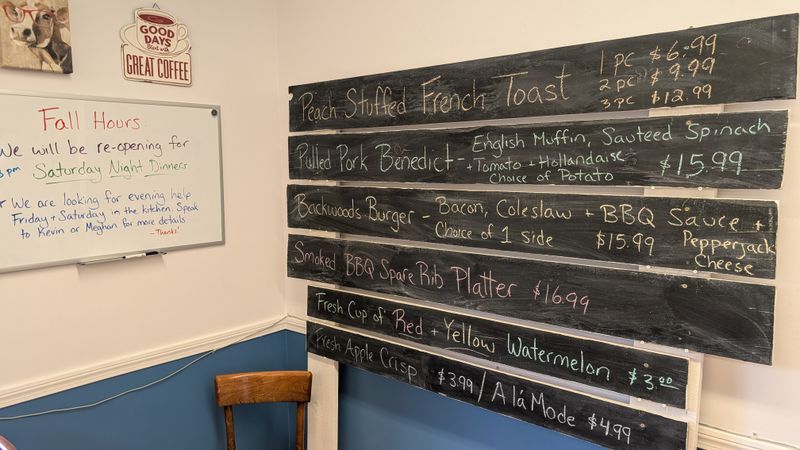 GOOD
DAYS
Start with
GREAT COFFEE
Fall Hours:
We will be re-opening for
pm Saturday Night Dinners
We are looking for evening help
Friday + Saturday in the kitchen. Speak
to Kevin or Meghan for more details
-Thanks!
Peach Stuffed French Toast
1 pc $6.99
2 pc $9.99
3 pc $12.99
Pulled Pork Benedict - English Muffin, Sauteed Spinach
+ Tomato + Hollandaise
Choice of Potato
$15.99
Backwoods Burger - Bacon, Coleslaw + BBQ Sauce +
Choice of 1 side $15.99 Pepperjack
Cheese
Smoked BBQ Spare Rib Platter $16.99
Fresh Cup of Red + Yellow Watermelon $3.00
Fresh Apple Crisp $3.99 / A lá Mode $4.99